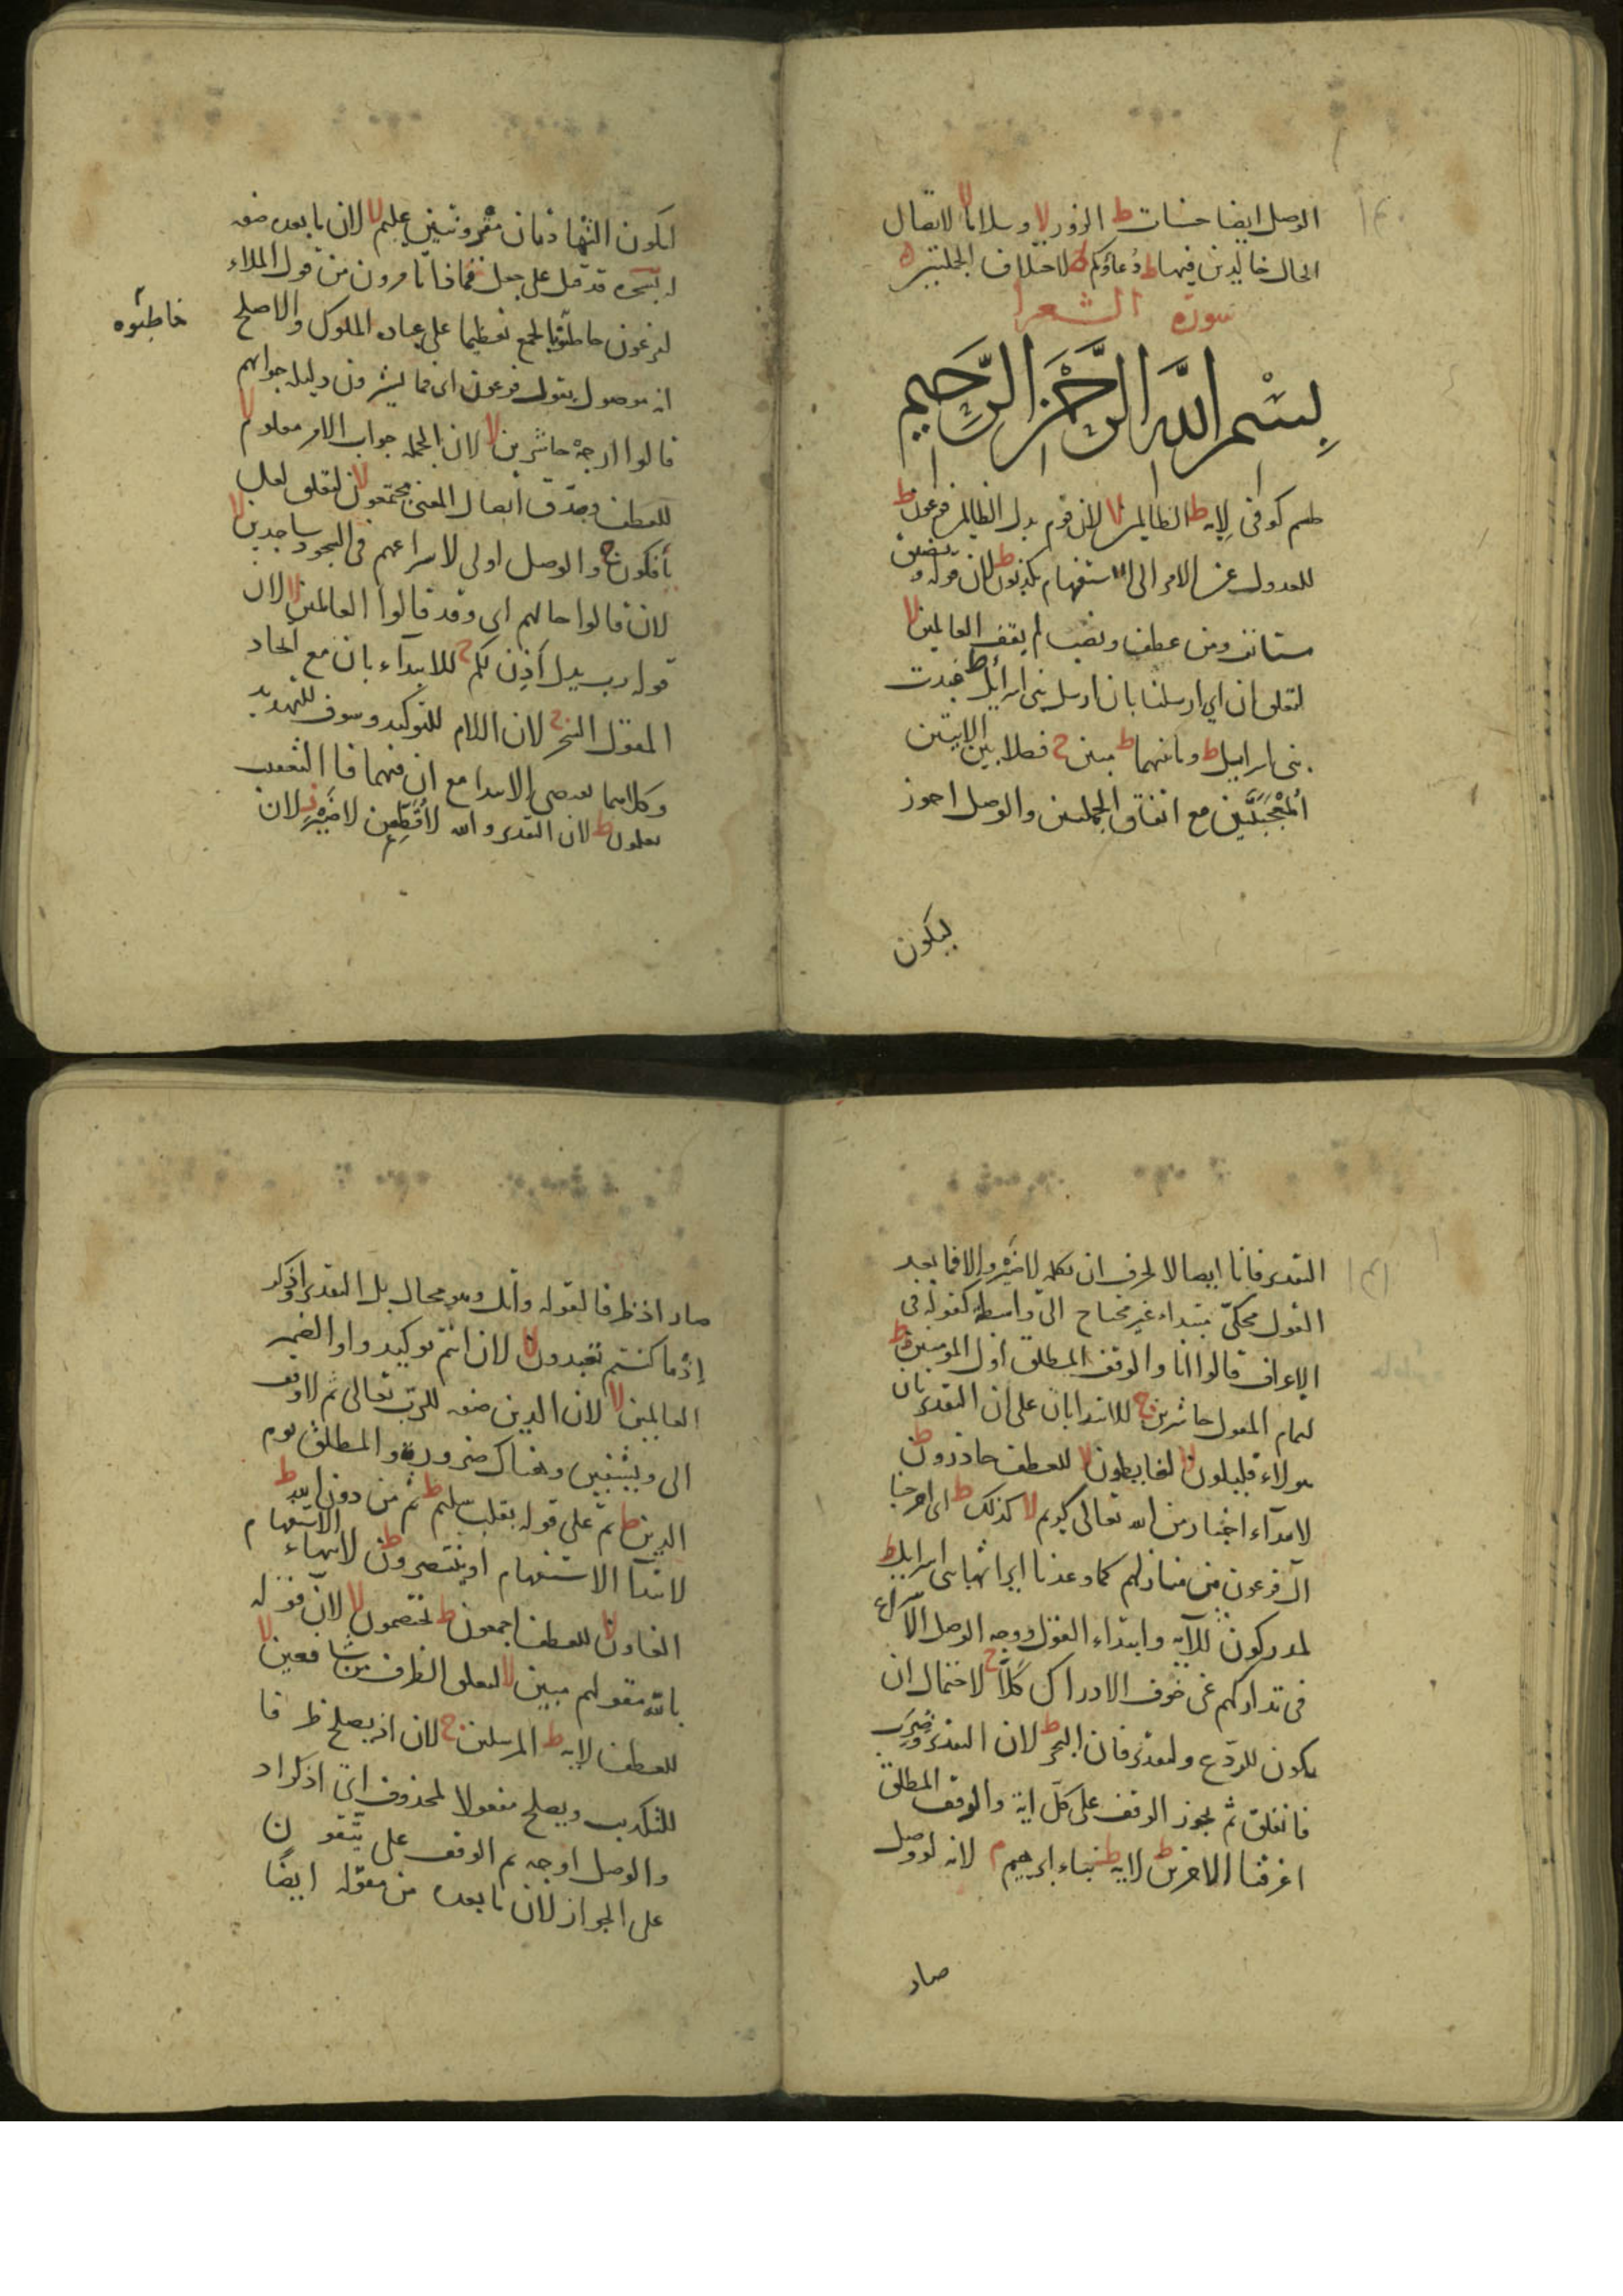 الوصل ايضا حسنات ط الزور لا وسلاما لا لاتصال
الحال خالدين فيها ط دعاؤكم ج لاختلاف الجملتين
سورة الشعرا
بسم الله الرحمن الرحيم
طسم كوفى لايه ط الظالمين لا لان قوم بدل الظالمين فرعون ط
للعدول عن الامر الى الاستفهام يكذبون ط لان قوله ويضيق
مستانف ومن عطف ونصب لم يقف العالمين لا
لتعلق ان اي ارسلنا بان ارسل بنى اسرائيل ط فحدت
بنى اسرائيل ط وما بينهما ط مبين ج فصلا بين الايتين
المعجبتين مع اتفاق الجملتين والوصل اجوز
ليكون
ليكون الشهادتان مقرونتين عليم لا لان ما بعده صفه
لسحره قد قيل على جعل فماذا تامرون من قول الملاء
لفرعون خاطبوه بالجمع تعظيما على عباده الملوك والاصلح
خاطبوه
انه موصول بقول فرعون اى فما تشيرون ودليله جوابهم
قالوا ارجه حاشرين لا لان الجمله جواب الامر معلوم لا
للعطف وصدق اتصال المعنى مجتمعون لا لتعلق لعل
يأفكون ج والوصل اولى لاسراعهم فى السجود ساجدين لا
لان قالوا حالهم اى وقد قالوا العالمين لا لان
قوله رب بدل أذن لكم ج للابتدآء بان مع اتحاد
المقول السحر ج لان اللام للتوكيد وسوف للتهديد
وكلاهما يقتضى الابتدا مع ان فيهما فا التعقيب
تعلمون ط لان التقدير والله لأقطعن لا ضير ز لان
التقدير فانا ايضا لا لحرف ان تكلمه لا ضير والا فما بعد
القول محكىّ مبتداء غير محتاج الى واسطة كقوله فى
الاعراف قالوا انا والوقف المطلق اول المومنين ط
لتمام المقول حاشرين ج للابتدا بان على ان التقدير بان
هولاء قليلون لا لغايظون لا للعطف حاذرون ط
لابتدآء اخبار من الله تعالى كريم لا كذلك ط اى اخرجنا
آل فرعون من منازلهم كما وعدنا ايراثها بنى اسرايل ط
لمدركون للآية وابتداء القول ووجه الوصل الاسراع
فى تداركهم عن خوف الادراك كلا ج لاحتمال ان
يكون للردع ولتقدير فان البحر ط لان التقدير فضرب
فانفلق ثم يجوز الوقف على كل اية والوقف المطلق
اغرقنا الاخرين ط لاية ط نباء ابرهيم م لانه لو وصل
صار
صار اذ ظرفا لقوله واتل وهو محال بل التقدير واذكر
إذ ما كنتم تعبدون لا لان انتم توكيد واو الضمير
العالمين لا لان الذين صفه للرب تعالى ثم لا وقف
الى ويشفين وهناك ضرورة والمطلق يوم
الدين ط ثم على قوله بقلب سليم ط ثم من دون الله ط
لابتدآ الاستفهام او ينتصرون ط لانتهاء الاستفهام
الغاون لا للعطف اجمعون ط يختصمون لا لان قوله
بالله مقولهم مبين لا لتعلق الظرف من شافعين لا
للعطف لايه ط المرسلين ج لان اذ يصلح ظرفا
للتكذيب ويصلح مفعولا لمحذوف اى اذكر اذ
والوصل اوجه ثم الوقف على تتقون
على الجواز لان ما بعده من مقوله ايضا